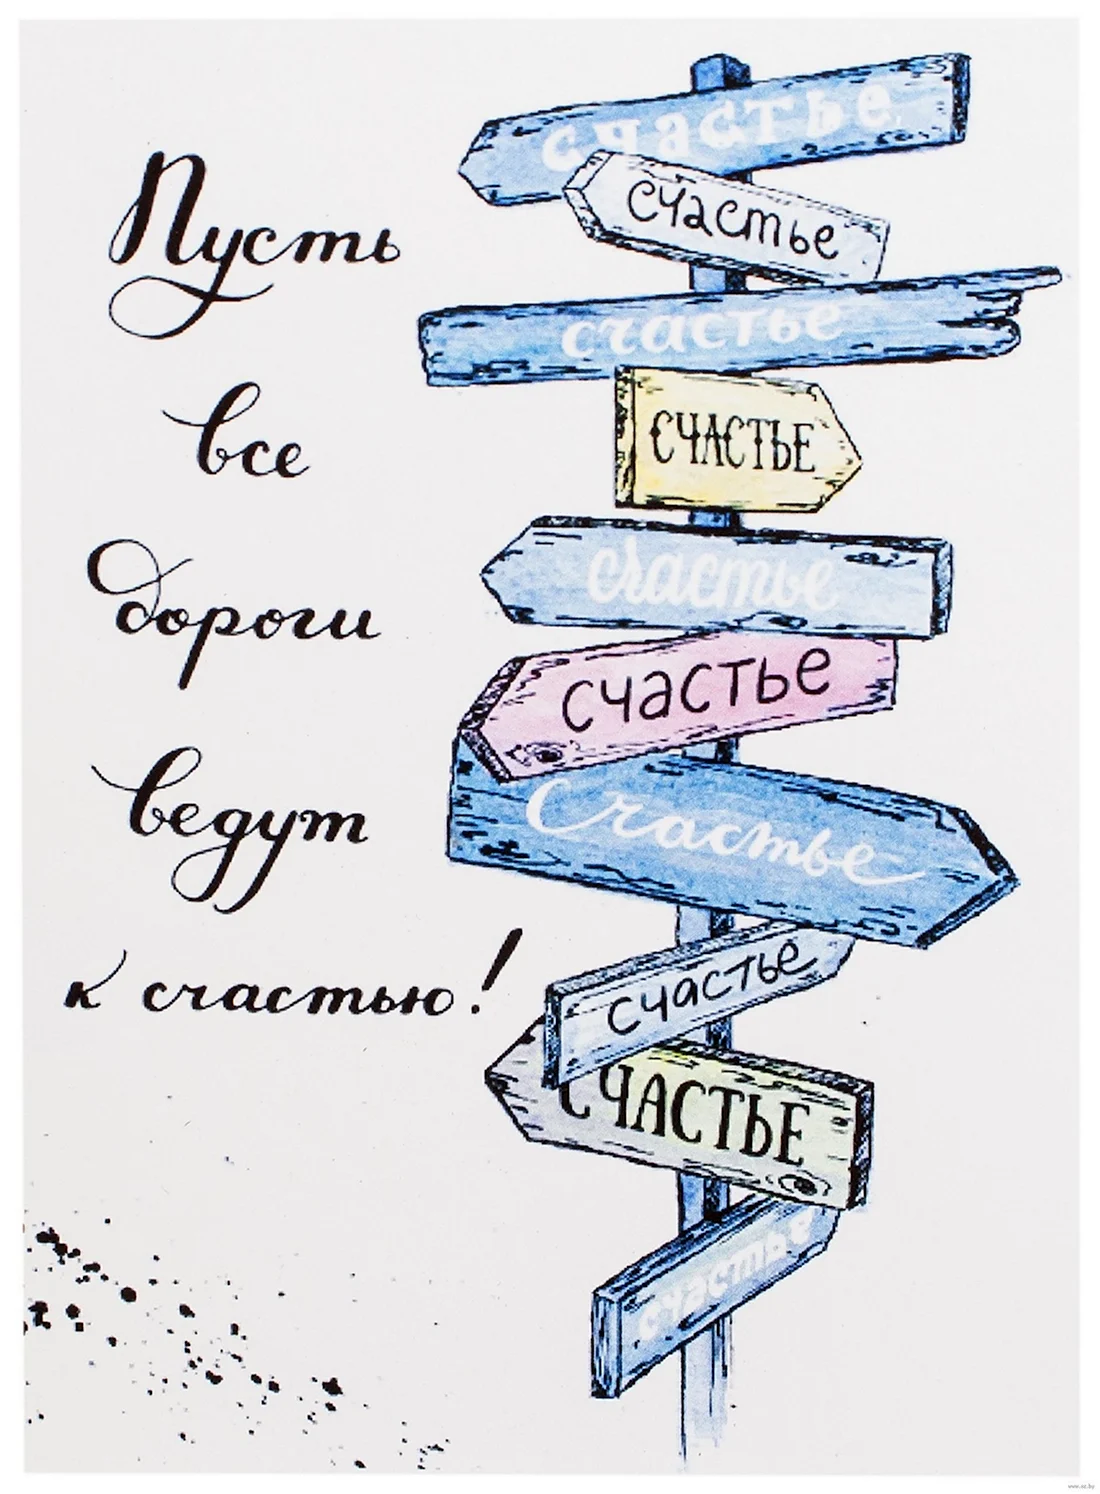 Пусть
все
дороги
ведут
к счастью!
счастье
счастье
счастье
СЧАСТЬЕ
счастье
счастье
Счастье
счастье
СЧАСТЬЕ
счастье
www.oz.by